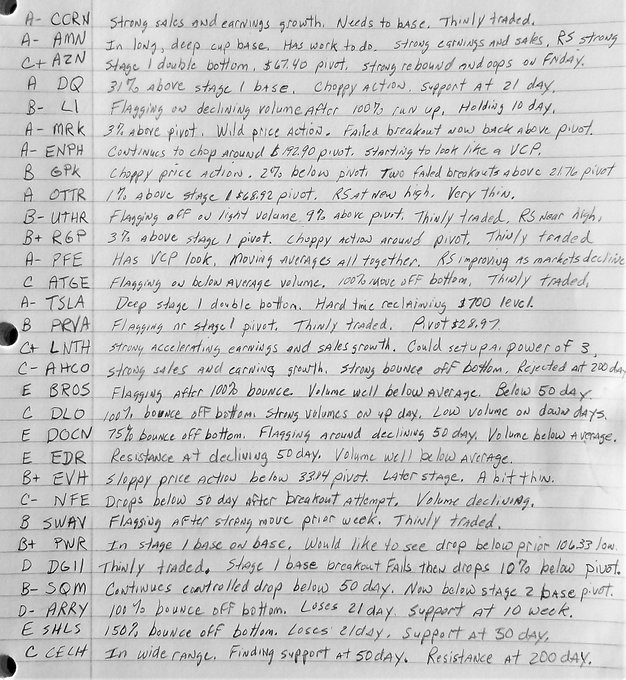 A- CCRN Strong sales and earnings growth. Needs to base. Thinly traded.
A- AMN In long, deep cup base. Has work to do. Strong earnings and sales. RS strong
C+ AZN Stage 1 double bottom, $67.40 pivot. Strong rebound and oops on Friday.
A DQ 31% above stage 1 base. Choppy action. Support at 21 day.
B- LI Flagging on declining volume after 100% run up. Holding 10 day.
A- MRK 3% above pivot. Wild price action. Failed breakout now back above pivot.
A- ENPH Continues to chop around $192.90 pivot. Starting to look like a VCP.
B GPK Choppy price action. 2% below pivot. Two failed breakouts above 21.76 pivot
A OTTR 1% above stage 1 $68.92 pivot. RS at new high. Very thin.
B- UTHR Flagging off on light volume 9% above pivot. Thinly traded. RS near high.
B+ RGP 3% above stage 1 pivot. Choppy action around pivot. Thinly traded
A- PFE Has VCP look. Moving averages all together. RS improving as markets decline
C ATGE Flagging on below average volume. 100% move off bottom. Thinly traded.
A- TSLA Deep stage 1 double bottom. Hard time reclaiming $700 level.
B PRVA Flagging nr stage 1 pivot. Thinly traded. Pivot $28.97
C+ LNTH Strong accelerating earnings and sales growth. Could set up a power of 3.
C- AHCO Strong sales and earning growth. Strong bounce off bottom. Rejected at 200 day
E BROS Flagging after 100% bounce. Volume well below average. Below 50 day.
C DLO 100% bounce off bottom. Strong volumes on up day. Low volume on down days.
E DOCN 75% bounce off bottom. Flagging around declining 50 day. Volume below average.
E EDR Resistance at declining 50 day. Volume well below average.
B+ EVH Sloppy price action below 33.14 pivot. Later stage. A bit thin.
C- NFE Drops below 50 day after breakout attempt. Volume declining.
B SWAV Flagging after strong move prior week. Thinly traded.
B+ PWR In stage 1 base on base. Would like to see drop below prior 106.33 low.
D DGII Thinly traded. Stage 1 base breakout fails then drops 10% below pivot.
B- SQM Continues controlled drop below 50 day. Now below stage 2 base pivot.
D- ARRY 100% bounce off bottom. Loses 21 day. Support at 10 week.
E SHLS 150% bounce off bottom. Loses 21 day. Support at 50 day.
C CELH In wide range. Finding support at 50 day. Resistance at 200 day.